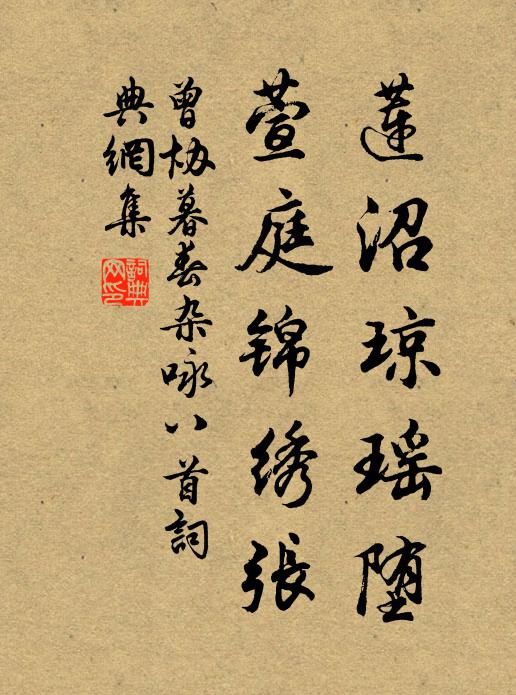 莲沼琼瑶堕
萱庭锦绣張
曾协暮春杂咏八首詞
典網集
詞典网印